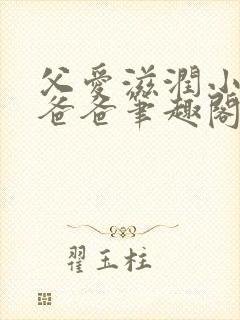 父愛滋潤小
爸爸筆趣閣
翟玉柱